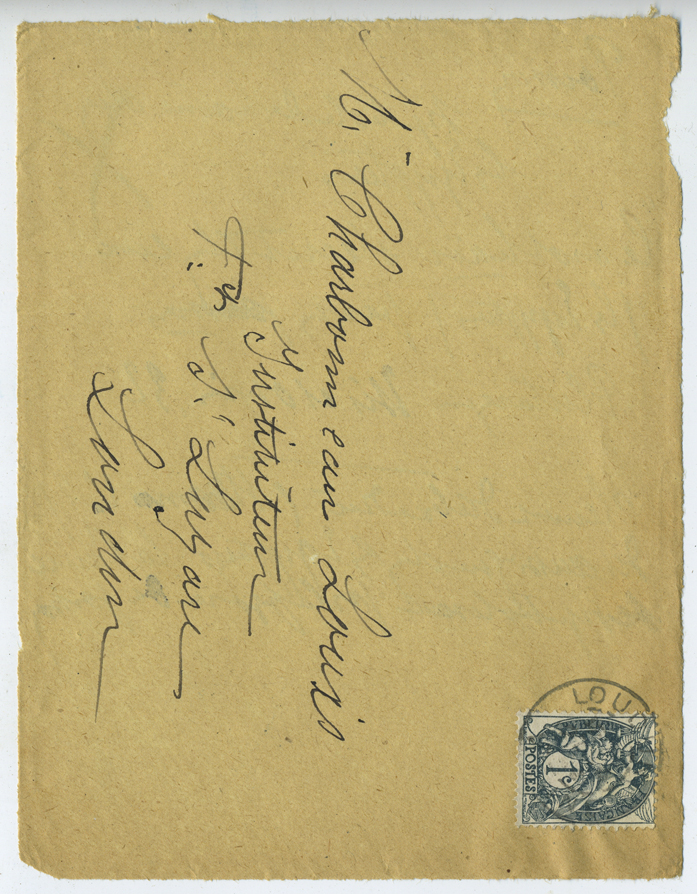 Mr Charbonneau Louis
Instituteur
Fg St Lazare
Loudun
LOU
RÉPUBLIQUE
FRANÇAISE
1c
POSTES